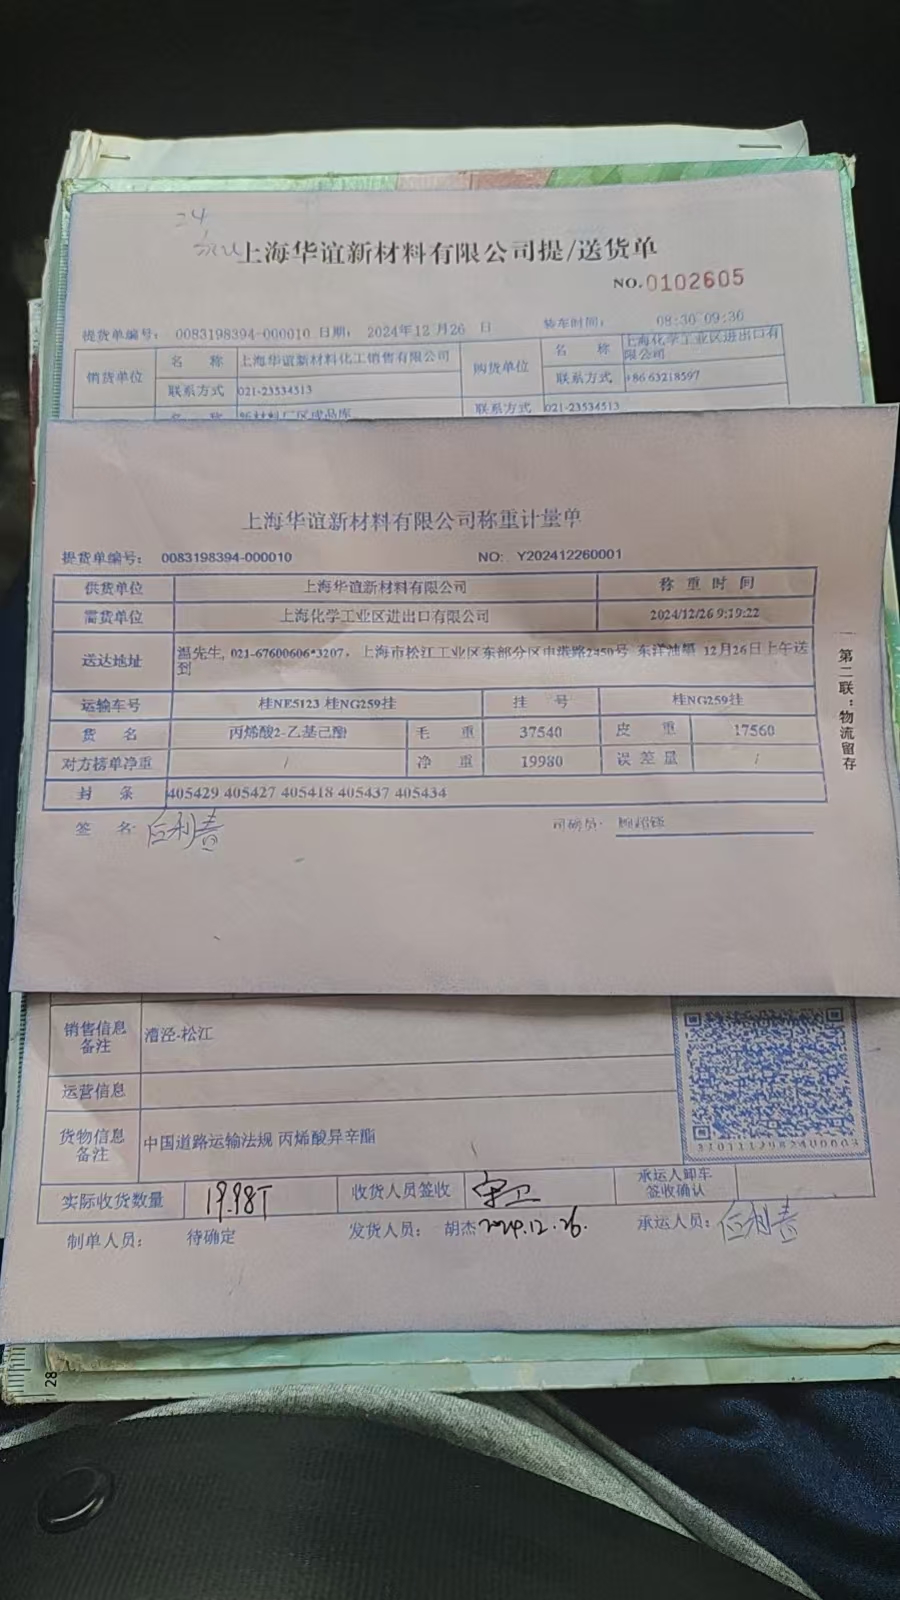 24
上海华谊新材料有限公司提/送货单
NO.0102605
提货单编号: 0083198394-000010 日期: 2024年12月26 日 装车时间: 08:30-09:30
销货单位 名 称 上海华谊新材料化工销售有限公司 购货单位 名 称 上海化学工业区进出口有限公司
联系方式 021-23534513 联系方式 +86 63218597
名 称 新材料厂区成品库 联系方式 021-23534513
上海华谊新材料有限公司称重计量单
提货单编号: 0083198394-000010 NO: Y202412260001
供货单位 上海华谊新材料有限公司 称 重 时 间
需货单位 上海化学工业区进出口有限公司 2024/12/26 9:19:22
送达地址 温先生, 021-67600606*3207, 上海市松江工业区东部分区申港路2450号 东洋油墨 12月26日上午送到
运输车号 桂NE5123 桂NG259挂 挂 号 桂NG259挂
货 名 丙烯酸2-乙基己酯 毛 重 37540 皮 重 17560
对方磅单净重 / 净 重 19980 误 差 量 /
封 条 405429 405427 405418 405437 405434
签 名: 司磅员:
第二联:物流留存
销售信息备注 漕泾-松江
运营信息
货物信息备注 中国道路运输法规 丙烯酸异辛酯
3101112982400003
实际收货数量 19.98T 收货人员签收 承运人卸车签收确认
制单人员: 待确定 发货人员: 胡杰 2024.12.26. 承运人员:
28